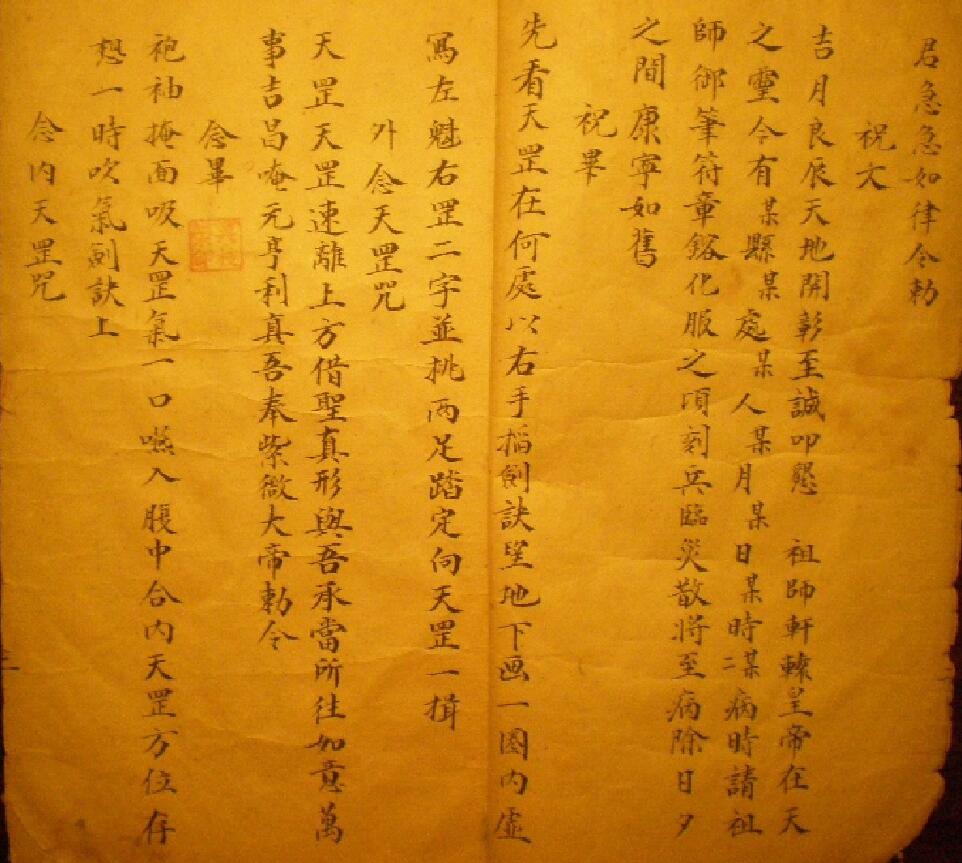 君急急如律令勅
祝文
吉月良辰天地開彰至誠叩懇 祖師軒轅皇帝在天
之靈今有某縣某處某人某月某日某時二某病時請祖
師御筆符章鎔化服之頃刻兵臨災散將至病除日夕
之間康寧如舊
祝畢
先看天罡在何處以右手掐劍訣望地下画一圈内虛
寫左魁右罡二字並挑两足踏定向天罡一揖
外念天罡咒
天罡天罡速離上方借聖真形與吾承當所往如意萬
事吉昌唵元亨利真吾奉紫微大帝勅令
念畢
袍袖掩面吸天罡氣一口嚥入腹中合内天罡方位存
想一時吹氣劍訣上
念内天罡咒